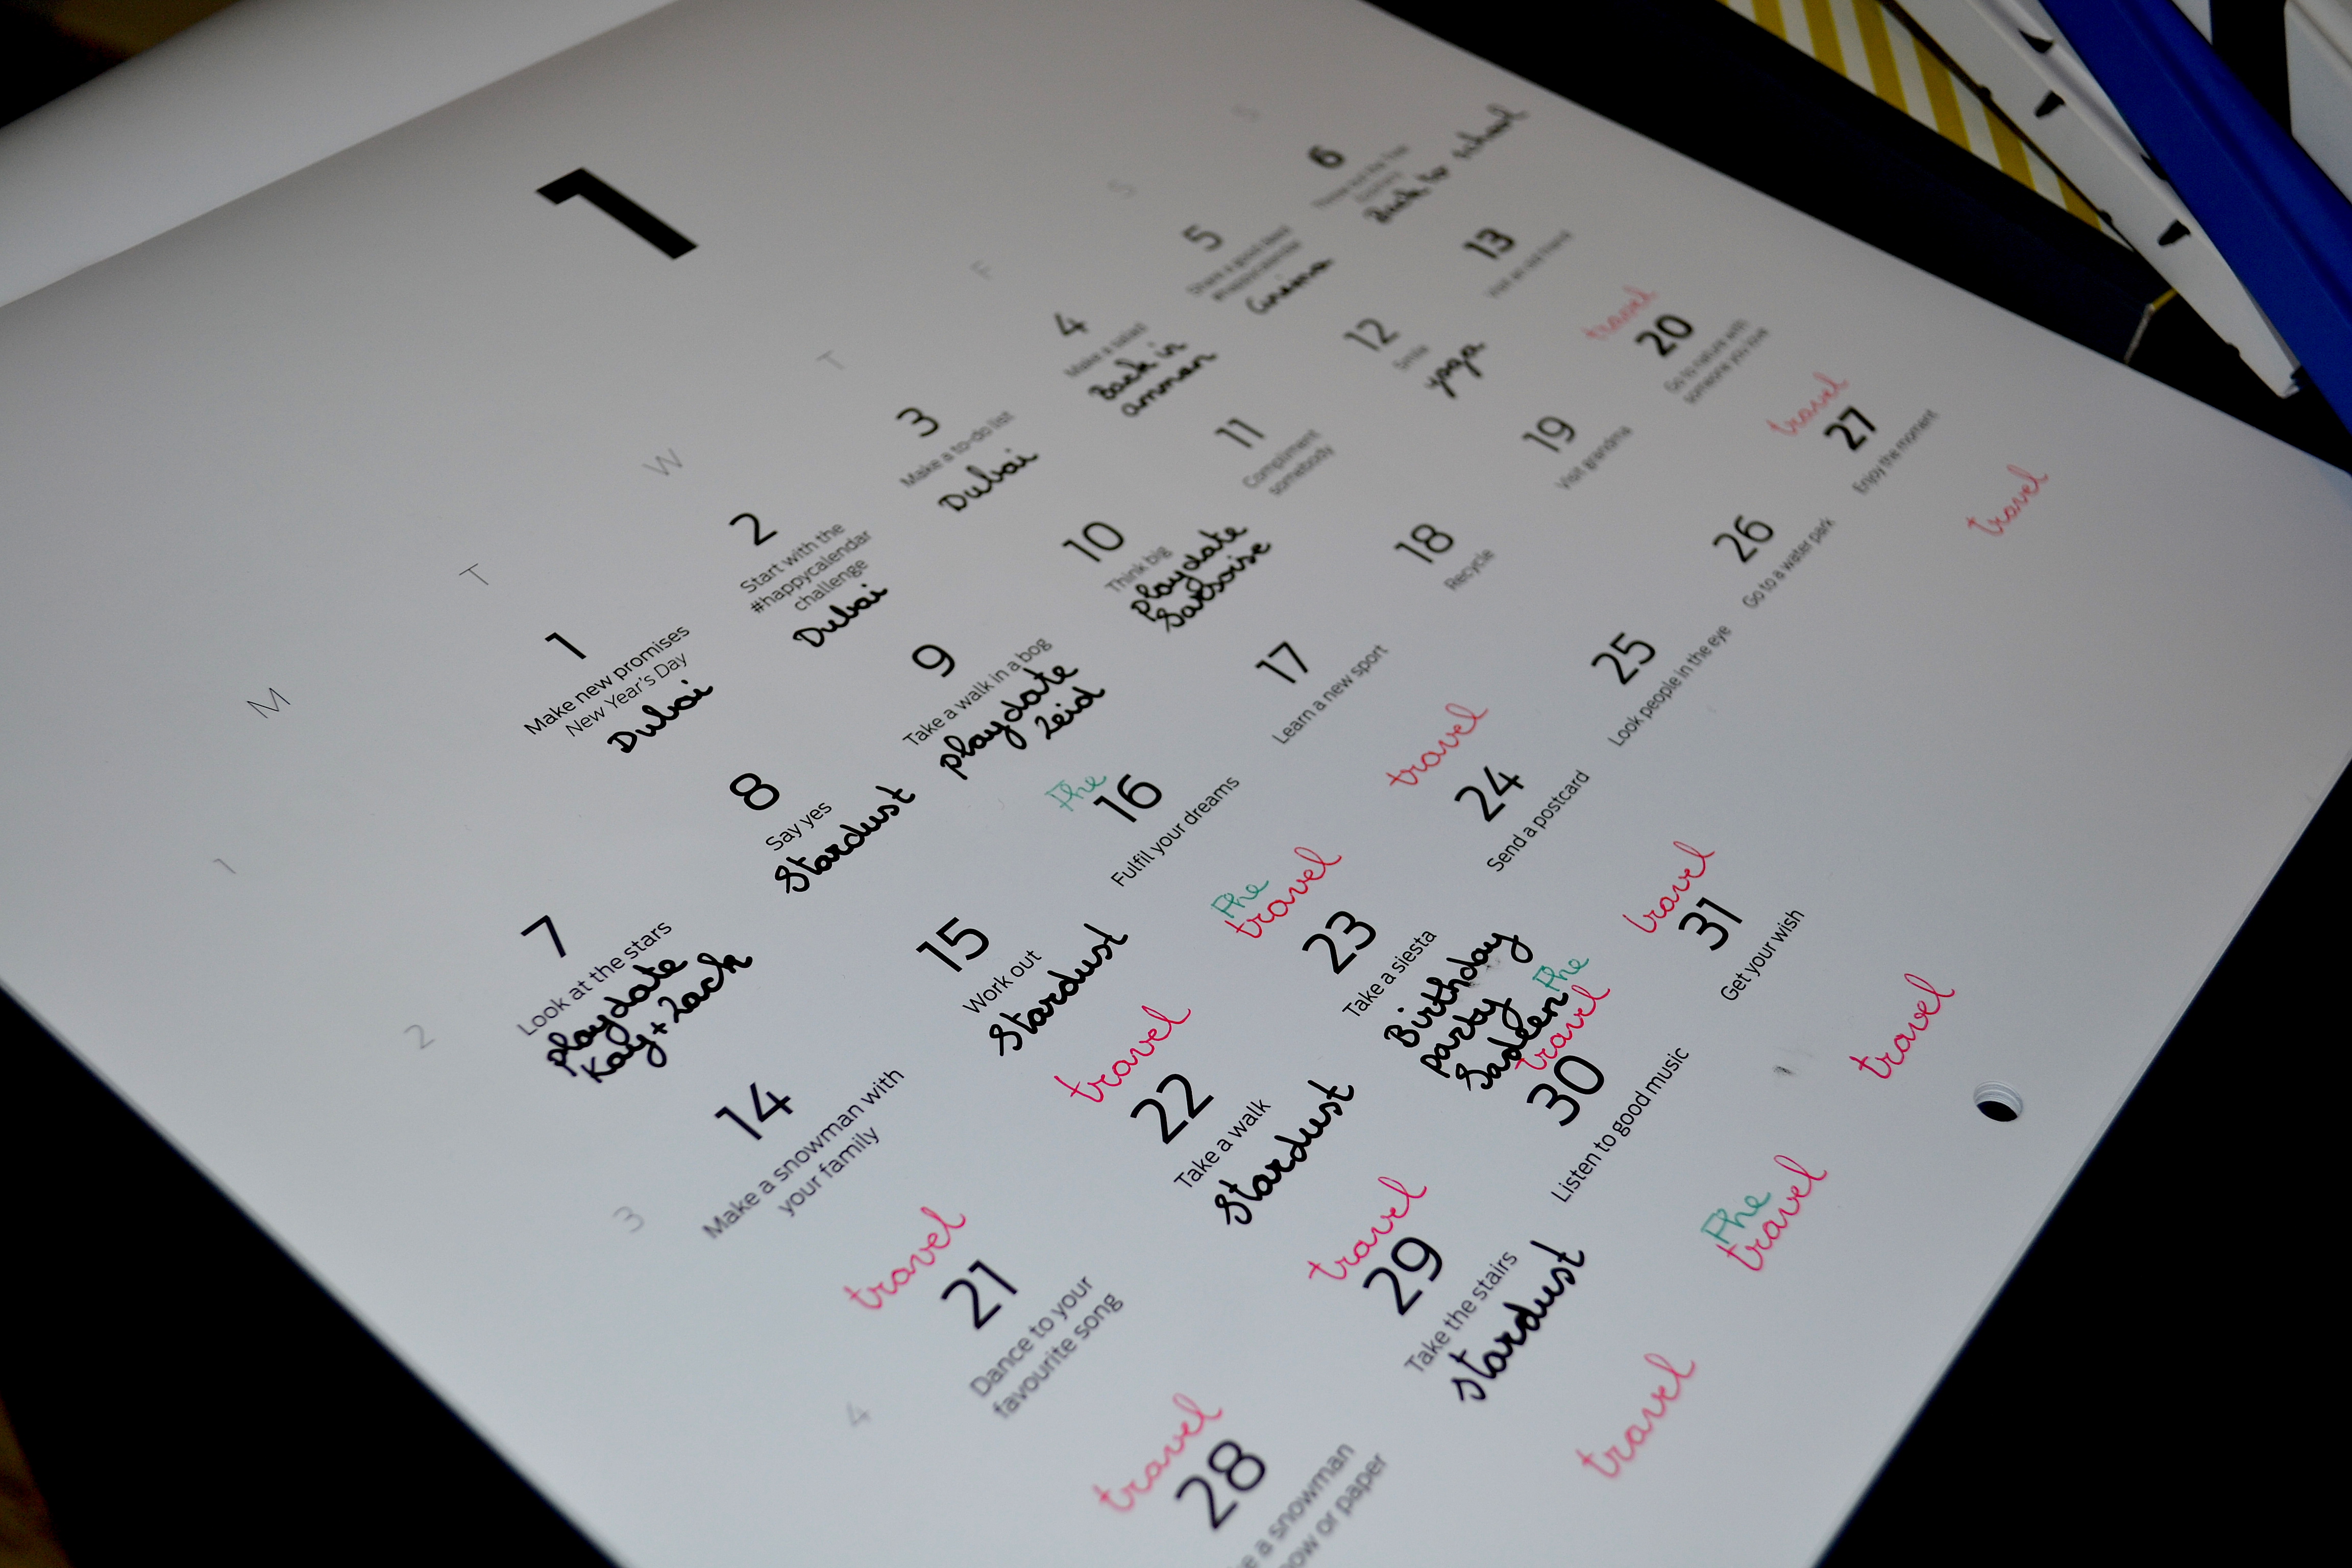 1
M
T
W
T
F
S
S
1
1
Make new promises
New Year's Day
Dubai
2
Start with the
#happycalendar
challenge
Dubai
3
Make a to-do list
Dubai
4
Make a salad
Back in
amman
5
Share a good deed
Cinema
6
Back to school
2
7
Look at the stars
playdate
Kay + Zach
8
Say yes
Stardust
9
Take a walk in a bog
playdate
Zeid
10
Think big
playdate
11
Compliment
somebody
12
Smile
yoga
13
Visit an old friend
3
14
Make a snowman with
your family
15
Work out
Stardust
The
16
Fulfil your dreams
17
Learn a new sport
18
Recycle
19
Visit grandma
travel
20
Go to nature with
someone you love
4
travel
21
Dance to your
favourite song
travel
22
Take a walk
Stardust
The
travel
23
Take a siesta
Birthday
party
Sadeen
travel
24
Send a postcard
25
Look people in the eye
26
Go to a water park
travel
27
Enjoy the moment
travel
28
a snowman
or paper
travel
29
Take the stairs
Stardust
The
travel
30
Listen to good music
travel
31
Get your wish
travel
The
travel
travel
travel